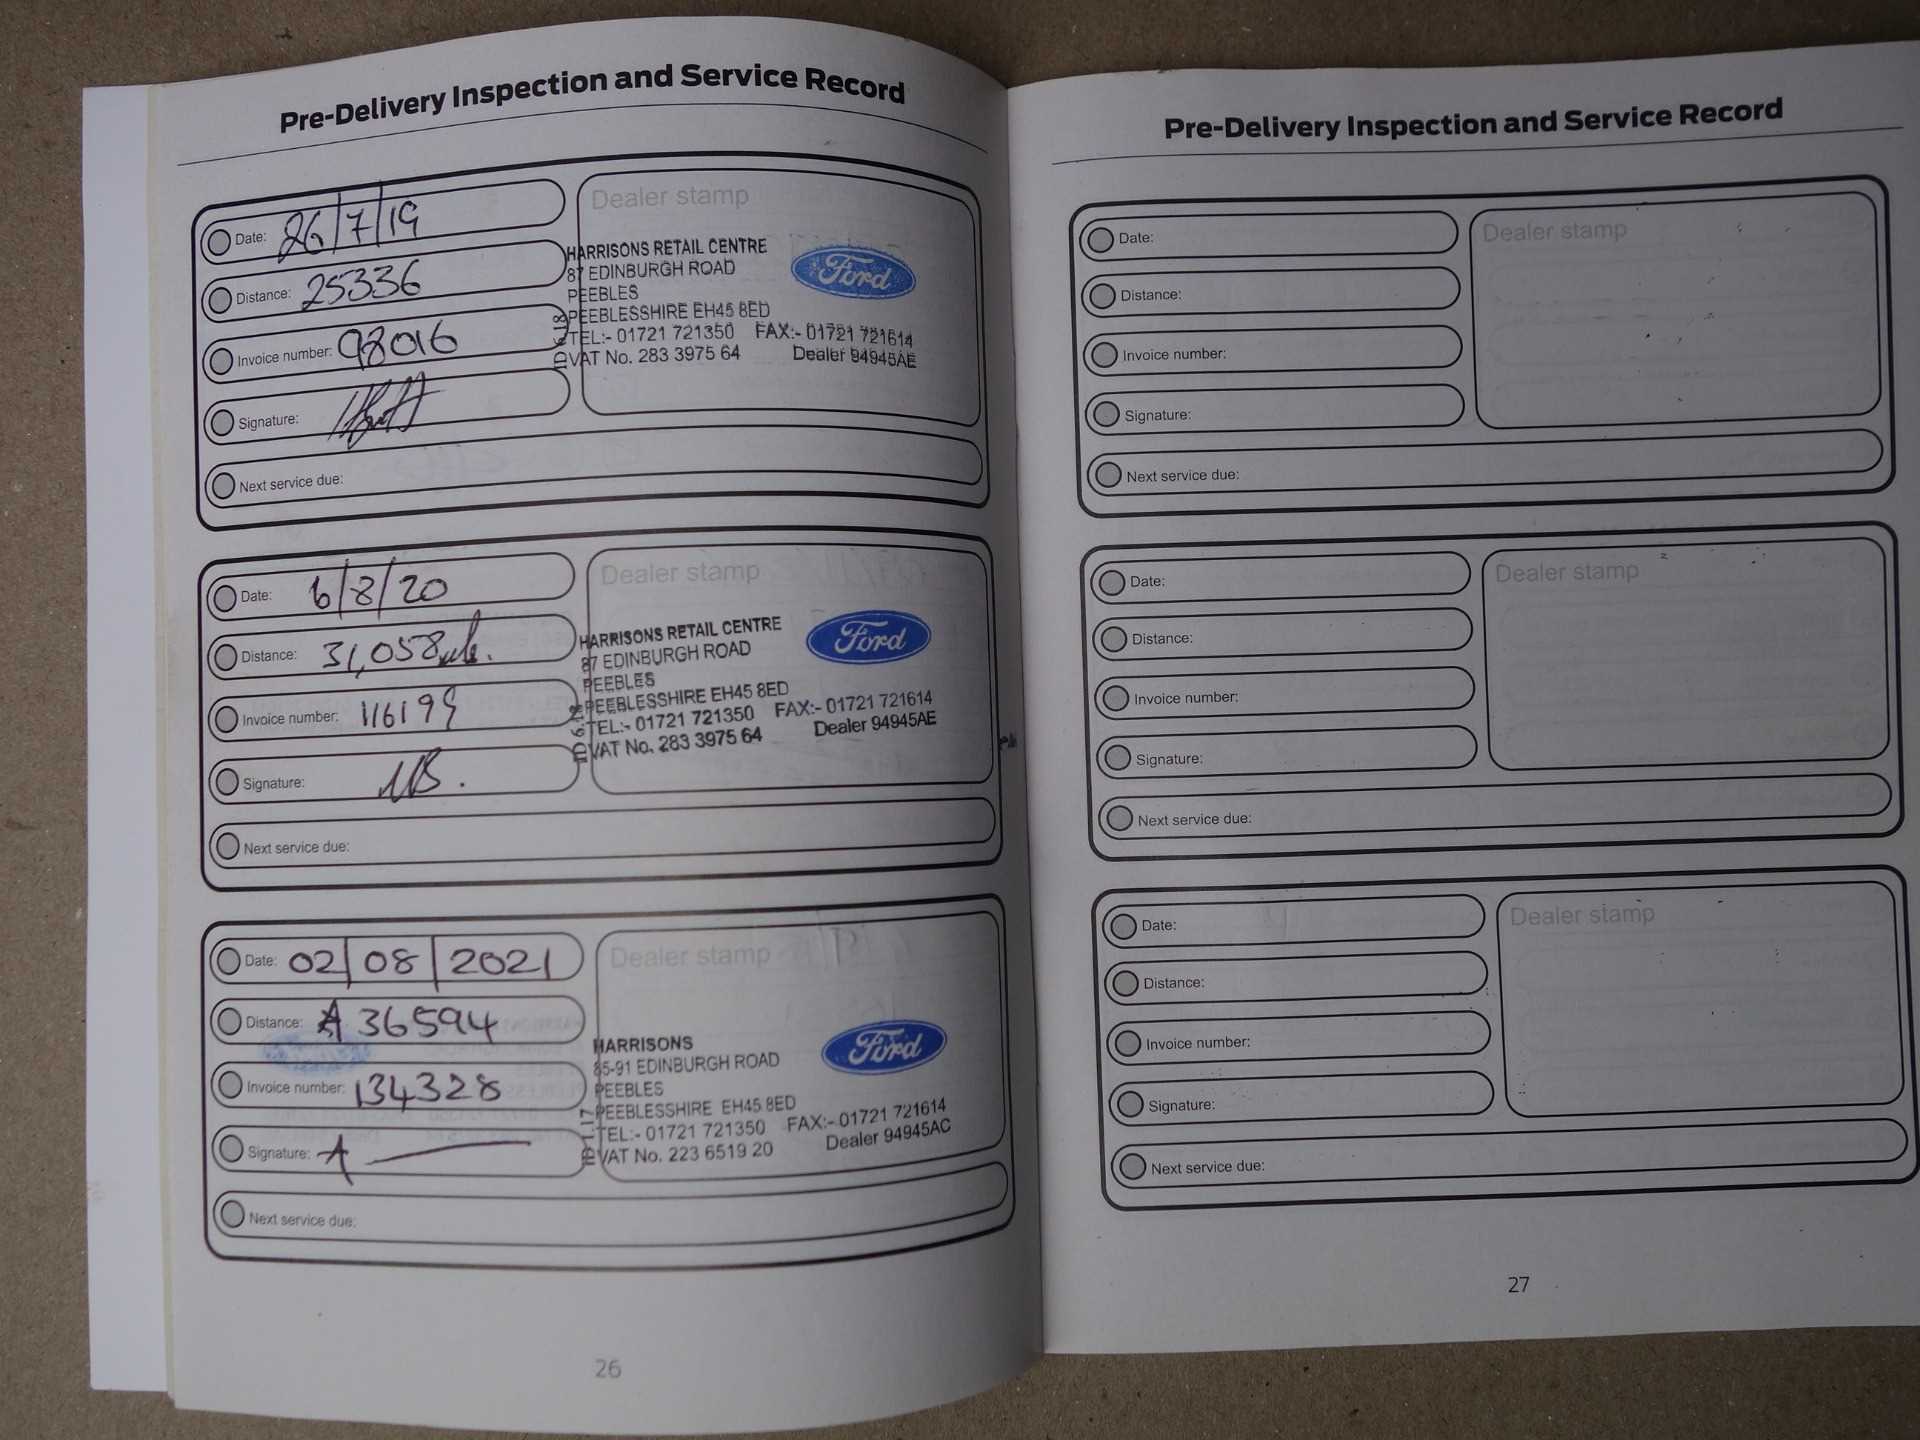 Pre-Delivery Inspection and Service Record
Date: 26/7/19
Distance: 25336
Invoice number: 98016
Signature:
Next service due:
Dealer stamp
HARRISONS RETAIL CENTRE
87 EDINBURGH ROAD
PEEBLES
PEEBLESSHIRE EH45 8ED
TEL:- 01721 721350 FAX:- 01721 721614
VAT No. 283 3975 64 Dealer 94945AE
Ford
Date: 6/8/20
Distance: 31,058
Invoice number: 116199
Signature:
Next service due:
Dealer stamp
HARRISONS RETAIL CENTRE
87 EDINBURGH ROAD
PEEBLES
PEEBLESSHIRE EH45 8ED
TEL:- 01721 721350 FAX:- 01721 721614
VAT No. 283 3975 64 Dealer 94945AE
Ford
Date: 02/08/2021
Distance: 36594
Invoice number: 134328
Signature:
Next service due:
Dealer stamp
HARRISONS
85-91 EDINBURGH ROAD
PEEBLES
PEEBLESSHIRE EH45 8ED
TEL:- 01721 721350 FAX:- 01721 721614
VAT No. 223 6519 20 Dealer 94945AC
Ford
26
Pre-Delivery Inspection and Service Record
Date:
Distance:
Invoice number:
Signature:
Next service due:
Dealer stamp
Date:
Distance:
Invoice number:
Signature:
Next service due:
Dealer stamp
Date:
Distance:
Invoice number:
Signature:
Next service due:
Dealer stamp
27